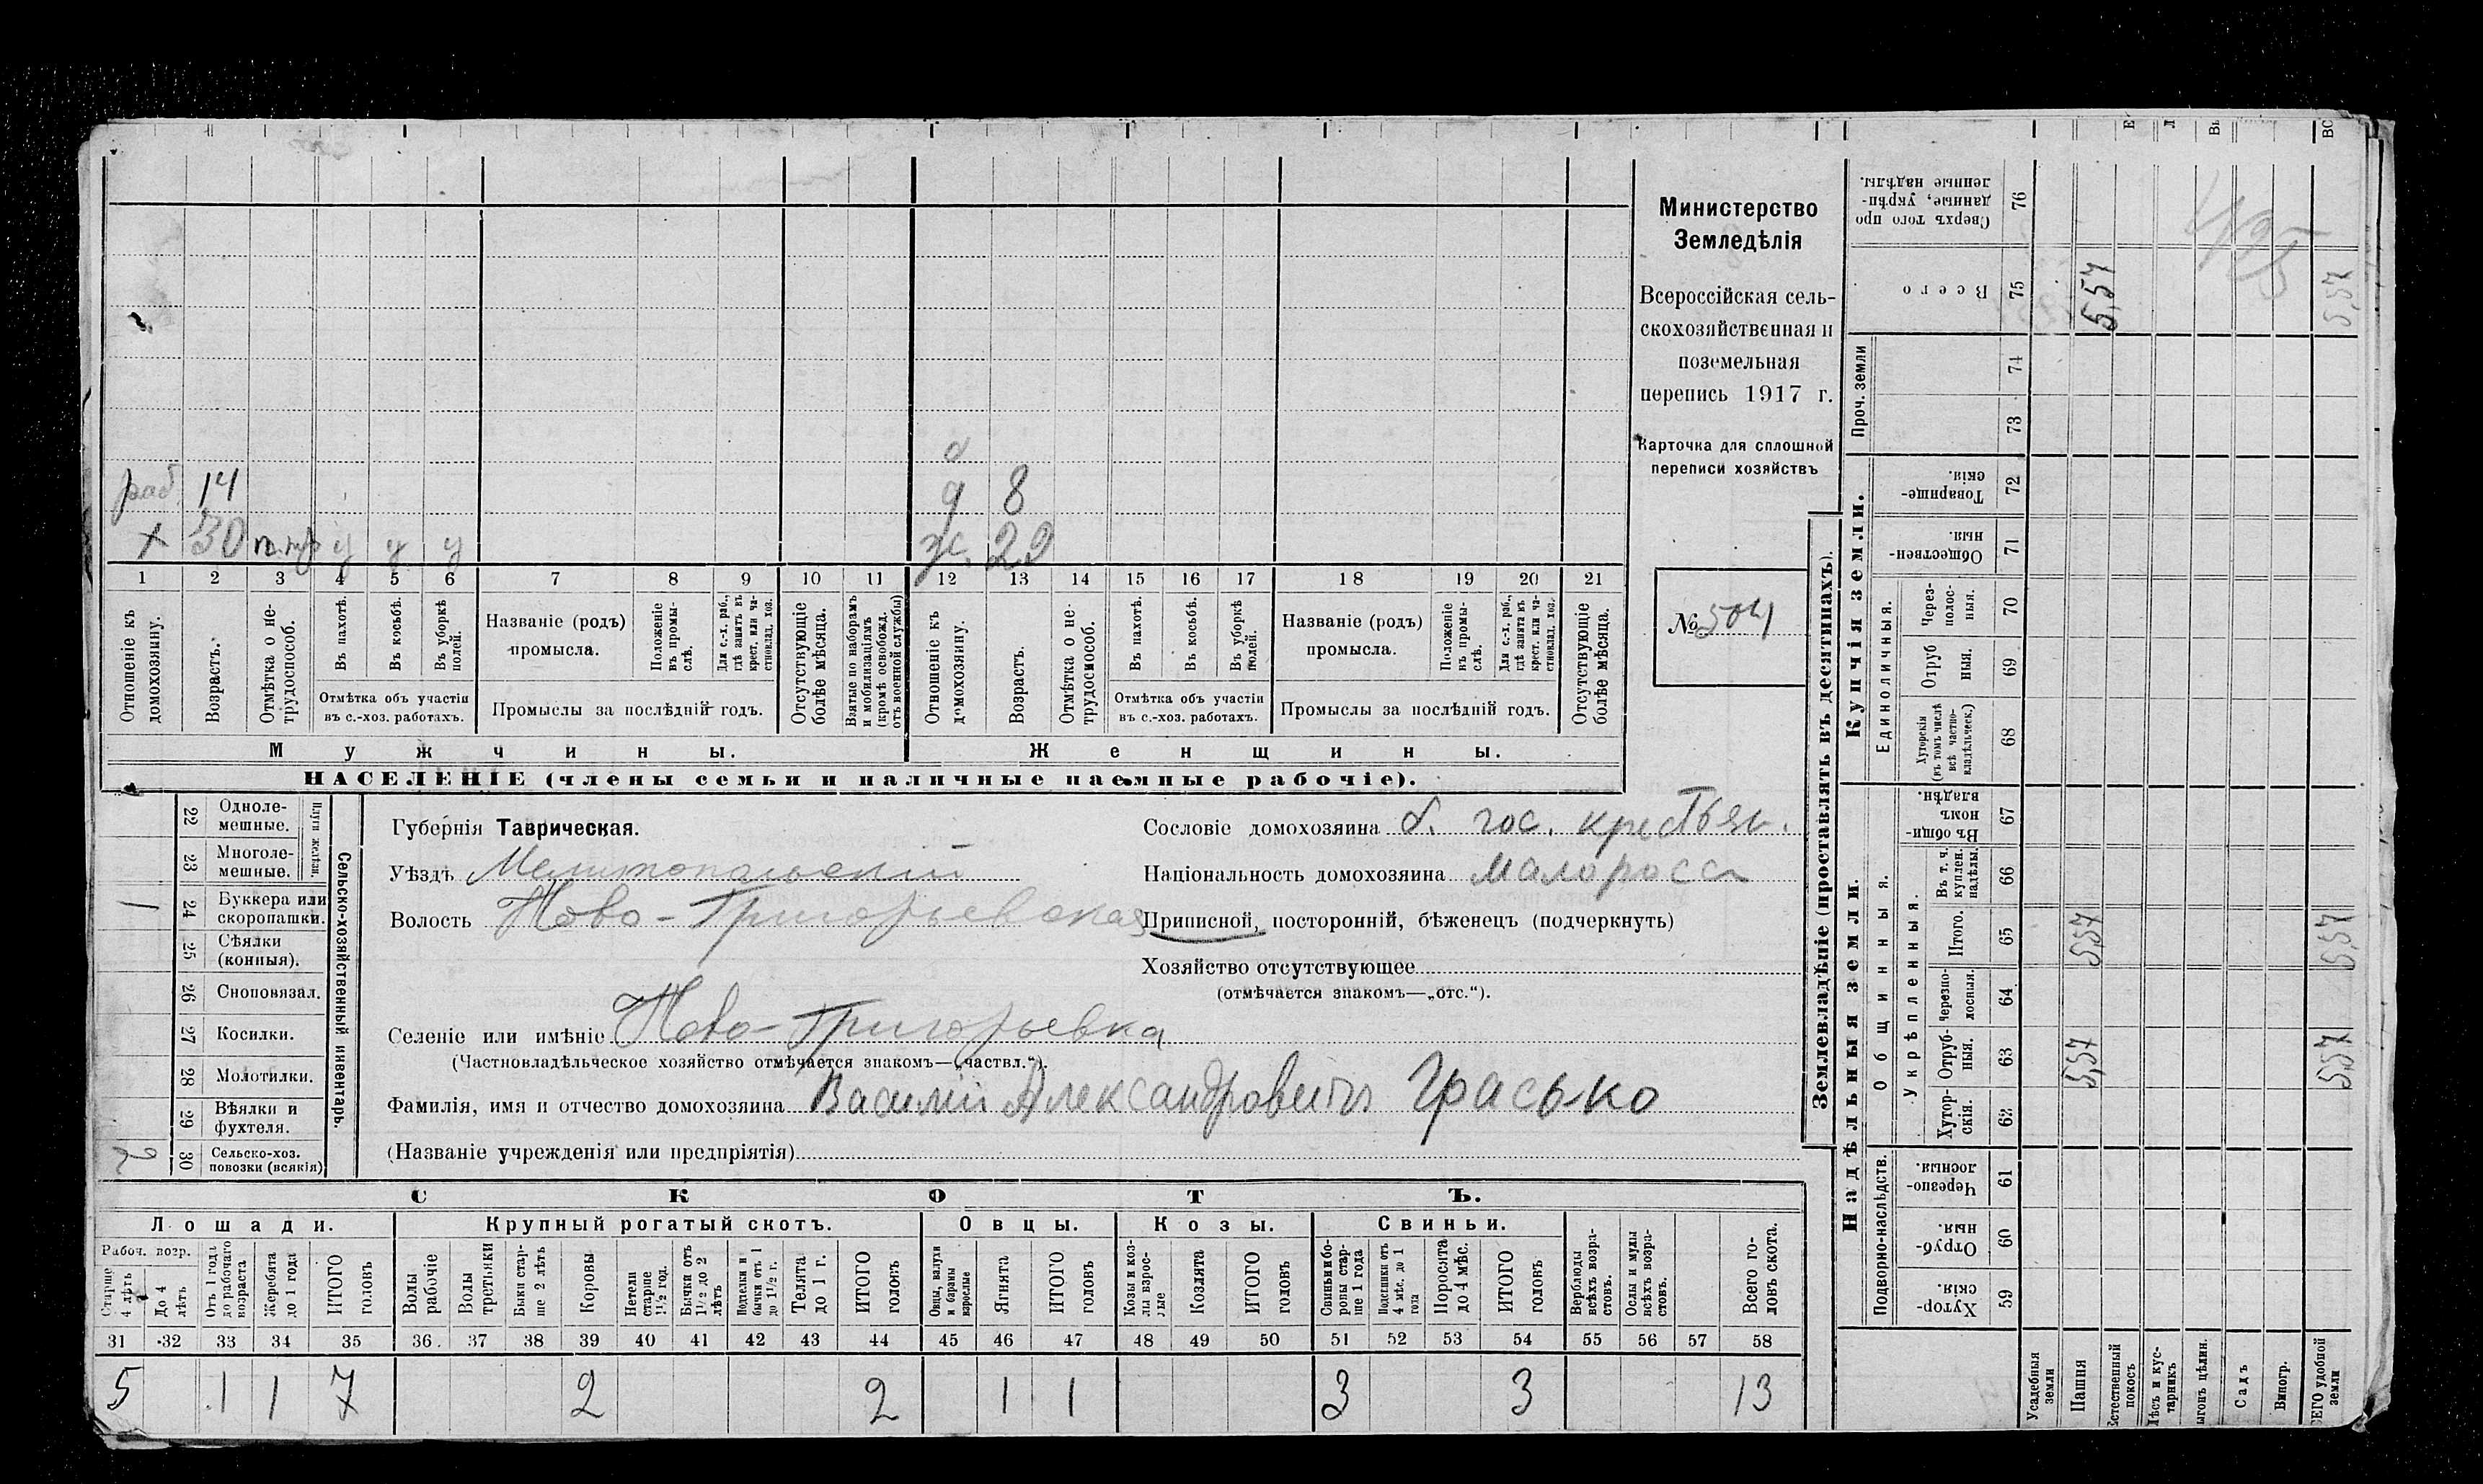 раб. 14 д 8
х 30 ж. 29
1 2 3 4 5 6 7 8 9 10 11 12 13 14 15 16 17 18 19 20 21
Отношеніе къ домохозяину.
Возрастъ.
Отмѣтка о не-трудоспособ.
Въ пахотѣ.
Въ косьбѣ.
Въ уборкѣ полей.
Отмѣтка объ участіи въ с.-хоз. работахъ.
Названіе (родъ) промысла.
Положеніе въ промы-слѣ.
Для с.-х. раб., гдѣ занятъ въ крест. или ча-стновлад. хоз.
Промыслы за послѣдній годъ.
Отсутствующіе болѣе мѣсяца.
Взятые по наборамъ и мобилизаціямъ (кромѣ освобожд. отъ военной службы)
Отношеніе къ домохозяину.
Возрастъ.
Отмѣтка о не-трудоспособ.
Въ пахотѣ.
Въ косьбѣ.
Въ уборкѣ полей.
Отмѣтка объ участіи въ с.-хоз. работахъ.
Названіе (родъ) промысла.
Положеніе въ промы-слѣ.
Для с.-х. раб., гдѣ занята въ крест. или ча-стновлад. хоз.
Промыслы за послѣдній годъ.
Отсутствующіе болѣе мѣсяца.
Мужчины.
Женщины.
НАСЕЛЕНІЕ (члены семьи и наличные наемные рабочіе).
Министерство
Земледѣлія
Всероссійская сель-
скохозяйственная и
поземельная
перепись 1917 г.
Карточка для сплошной
переписи хозяйствъ
№ 504
22 Одноле-мешные.
23 Многоле-мешные.
Плуги желѣзн.
24 Буккера или скоропашки. 1
25 Сѣялки (конныя).
26 Сноповязал.
27 Косилки.
28 Молотилки.
29 Вѣялки и фухтеля.
30 Сельско-хоз. повозки (всякія) 2
Сельско-хозяйственный инвентарь.
Губернія Таврическая.
Уѣздъ Мелитопольскій
Волость Ново-Григорьевская
Селеніе или имѣніе Ново-Григорьевка
(Частновладѣльческое хозяйство отмѣчается знакомъ—„частвл.“).
Фамилія, имя и отчество домохозяина Василій Александровичъ Грасько
(Названіе учрежденія или предпріятія)
Сословіе домохозяина б. гос. крестьян.
Національность домохозяина малоросс
Приписной, посторонній, бѣженецъ (подчеркнуть)
Хозяйство отсутствующее
(отмѣчается знакомъ—„отс.“).
СКОТЪ.
Лошади. Крупный рогатый скотъ. Овцы. Козы. Свиньи.
Рабоч. возр.
Старше 4 лѣтъ
До 4 лѣтъ
Отъ 1 года до рабочаго возраста
Жеребята до 1 года
ИТОГО головъ
Волы рабочіе
Волы третьяки
Быки стар-ше 2 лѣтъ
Коровы
Нетели старше 1½ год.
Бычки отъ 1½ до 2 лѣтъ
Подтелки и бычки отъ 1 до 1½ г.
Телята до 1 г.
ИТОГО головъ
Овцы, валухи и бараны взрослые
Ягнята
ИТОГО головъ
Козы и коз-лы взрос-лые
Козлята
ИТОГО головъ
Свиньи и бо-ровы стар-ше 1 года
Подсвинки отъ 4 мѣс. до 1 года
Поросята до 4 мѣс.
ИТОГО головъ
Верблюды всѣхъ возра-стовъ.
Ослы и мулы всѣхъ возра-стовъ.
Всего го-ловъ скота.
31 32 33 34 35 36 37 38 39 40 41 42 43 44 45 46 47 48 49 50 51 52 53 54 55 56 57 58
5 1 1 7 2 2 1 1 3 3 13
Землевладѣніе (проставлять въ десятинахъ).
Надѣльныя земли.
Купчія земли.
Проч. земли
Сверхъ того про данные, укрѣп-ленные надѣлы. 76
Всего 75 5,57 5,57
74
73
Товарище-скія 72
Обществен-ныя. 71
Единоличныя.
Через-полос-ныя. 70
Отруб ныя. 69
Хуторскія (въ томъ числѣ всѣ частно-владѣльческ.) 68
Общинныя.
Въ общи-номъ владѣн. 67
Укрѣпленныя.
Въ т. ч. куплен. надѣлы. 66
Итого. 65 5,57 5,57
Черезпо-лосныя. 64
Отруб-ныя. 63 5,57 5,57
Хутор-скія. 62
Подворно-наслѣдств.
Черезпо-лосныя. 61
Отруб-ныя. 60
Хутор-скія. 59
Усадебныя земли
Пашня
Естественный покосъ
Лѣсъ и кус-тарникъ
Выгонъ цѣлин.
Садъ
Виногр.
ВСЕГО удобной земли